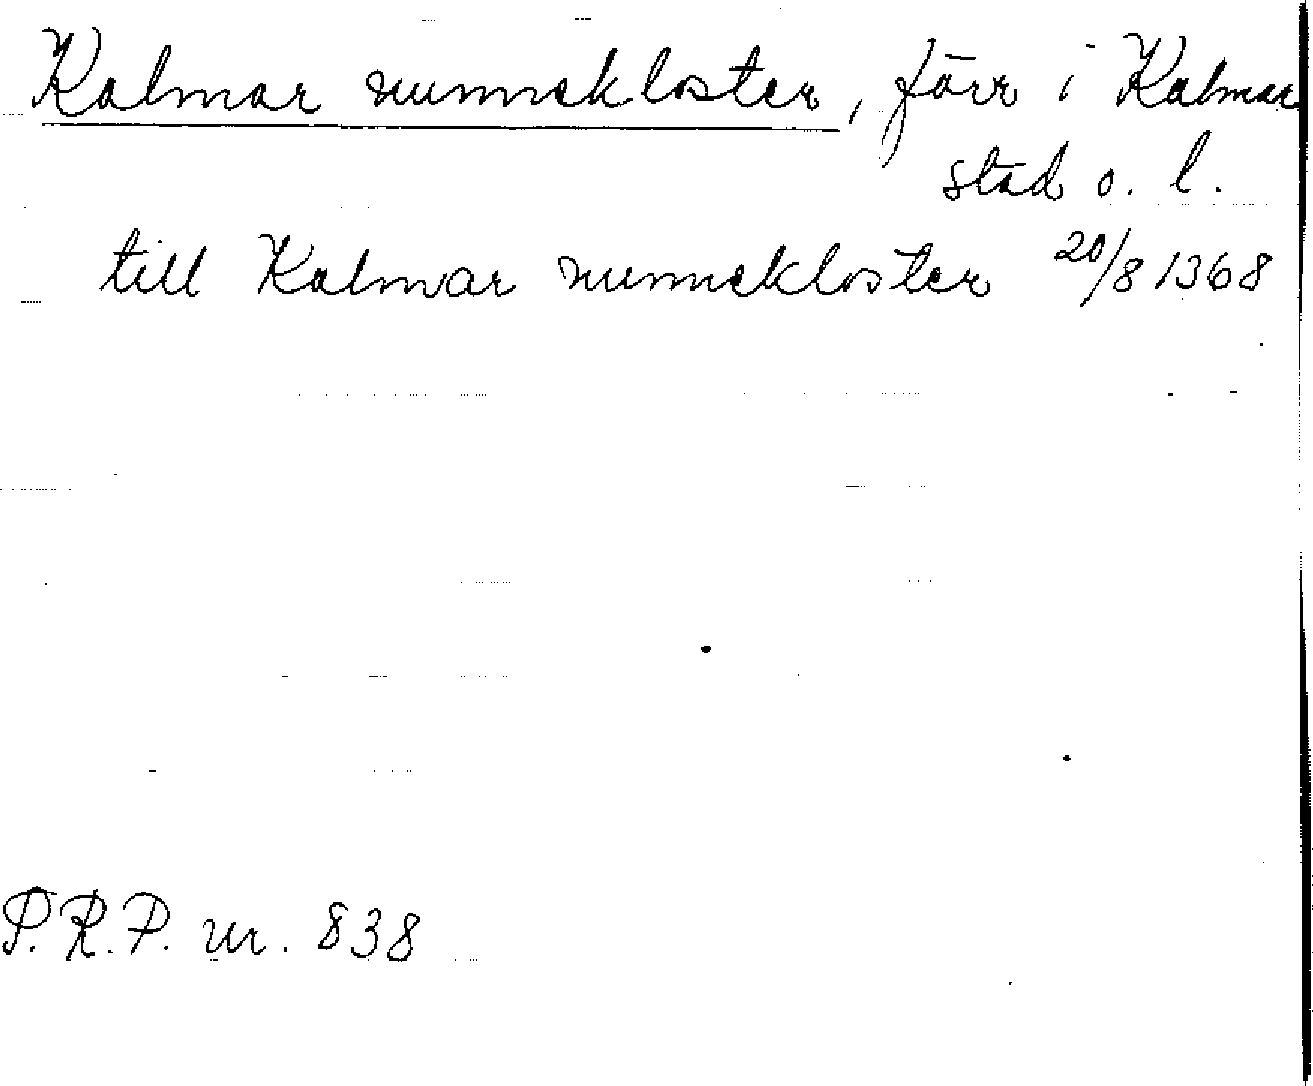 Kalmar nunnekloster, förr i Kalmar
stad o. l.
till Kalmar nunnekloster 20/8 1368
P.R.P. nr. 838